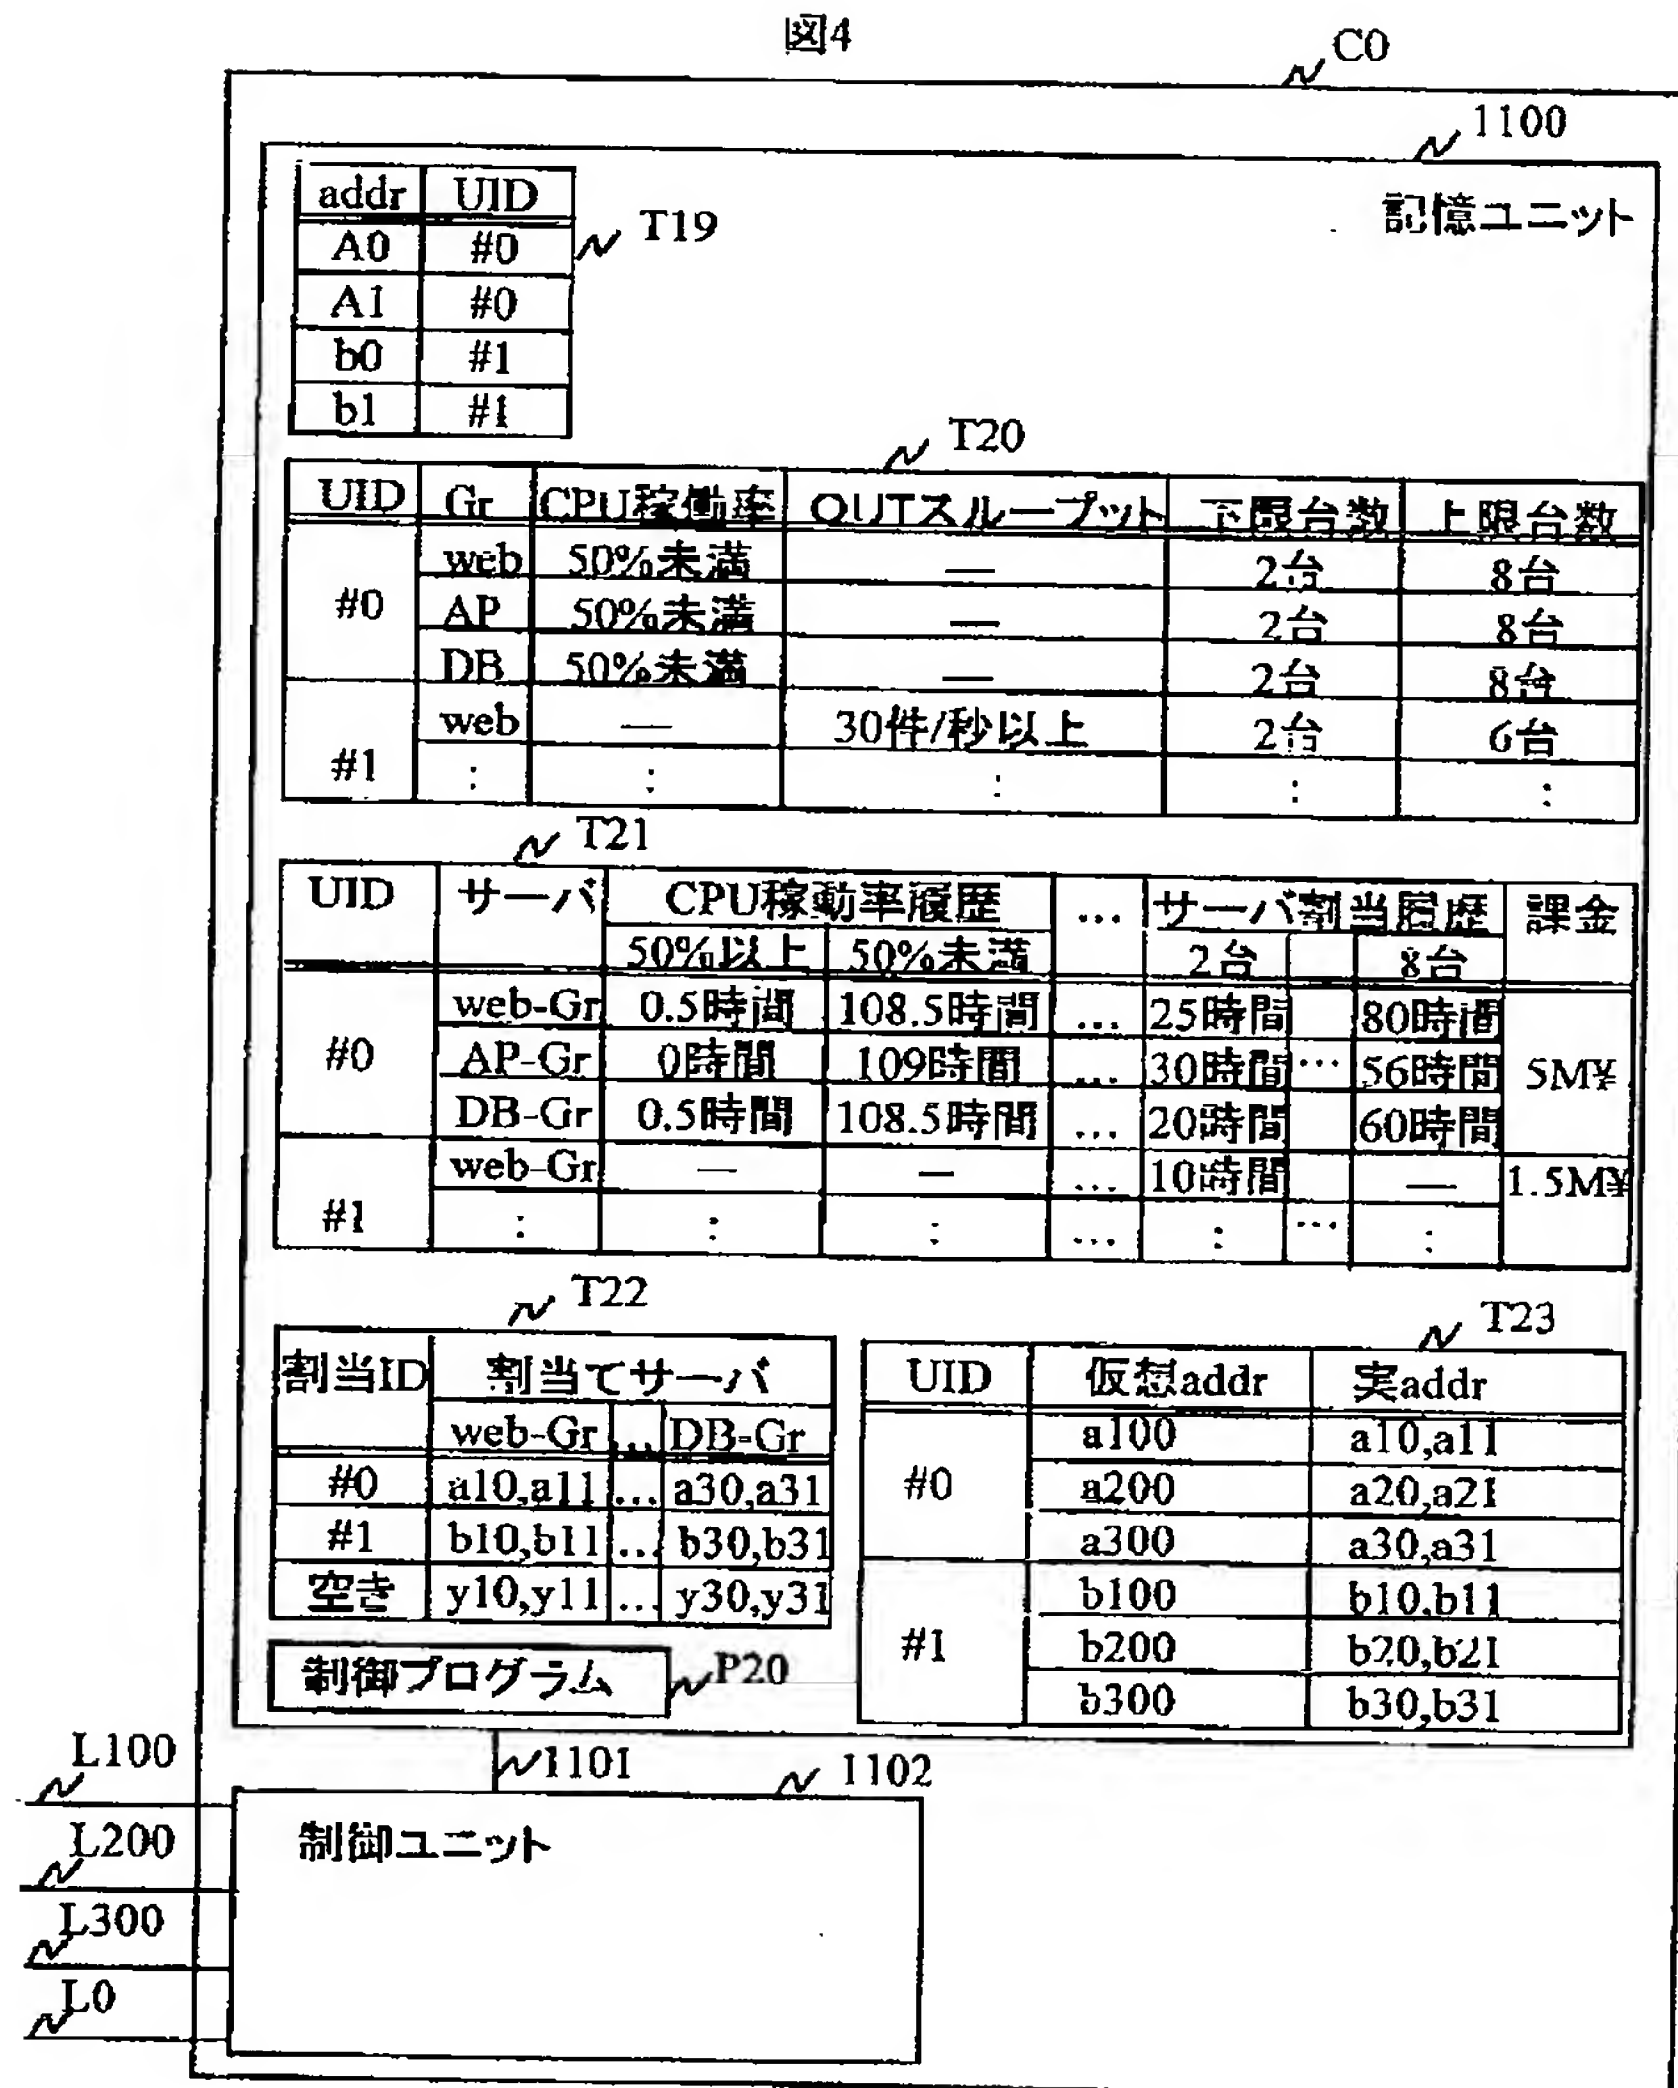 図4
C0
1100
記憶ユニット
addr UID
T19
A0 #0
A1 #0
b0 #1
b1 #1
T20
UID Gr CPU稼働率 OUTスループット 下限台数 上限台数
#0
web 50%未満 — 2台 8台
AP 50%未満 — 2台 8台
DB 50%未満 — 2台 8台
#1
web — 30件/秒以上 2台 6台
: : : : :
T21
UID サーバ CPU稼動率履歴 … サーバ割当履歴 課金
50%以上 50%未満 2台 8台
#0
web-Gr 0.5時間 108.5時間 … 25時間 80時間
AP-Gr 0時間 109時間 … 30時間 … 56時間 5M¥
DB-Gr 0.5時間 108.5時間 … 20時間 60時間
#1
web-Gr — — … 10時間 — 1.5M¥
: : : … : … :
T22
割当ID 割当てサーバ
web-Gr … DB-Gr
#0 a10,a11 … a30,a31
#1 b10,b11 … b30,b31
空き y10,y11 … y30,y31
T23
UID 仮想addr 実addr
#0
a100 a10,a11
a200 a20,a21
a300 a30,a31
#1
b100 b10,b11
b200 b20,b21
b300 b30,b31
制御プログラム P20
1101
1102
制御ユニット
L100
L200
L300
L0